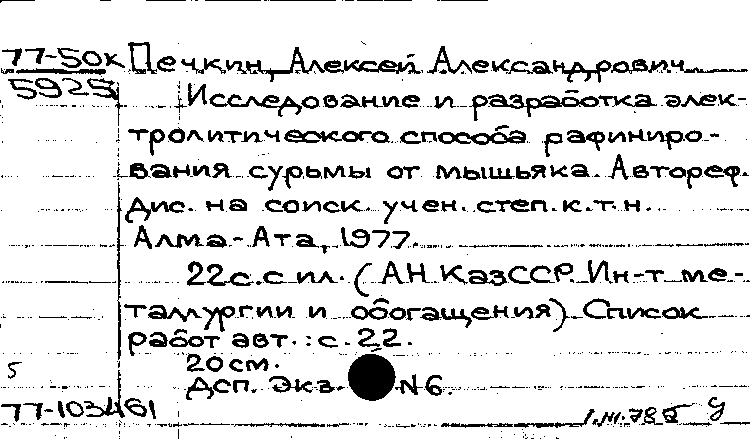 77-50к Печкин, Алексей Александрович
5925 Исследование и разработка элек-
тролитического способа рафиниро-
вания сурьмы от мышьяка. Автореф.
дис. на соиск. учен. степ. к.т.н.
Алма-Ата, 1977.
22с. с ил. (АН КазССР. Ин-т ме-
таллургии и обогащения) Список
работ авт.: с. 22.
5 20см.
Дсп. Экз. N6.
77-103461 1.III.78